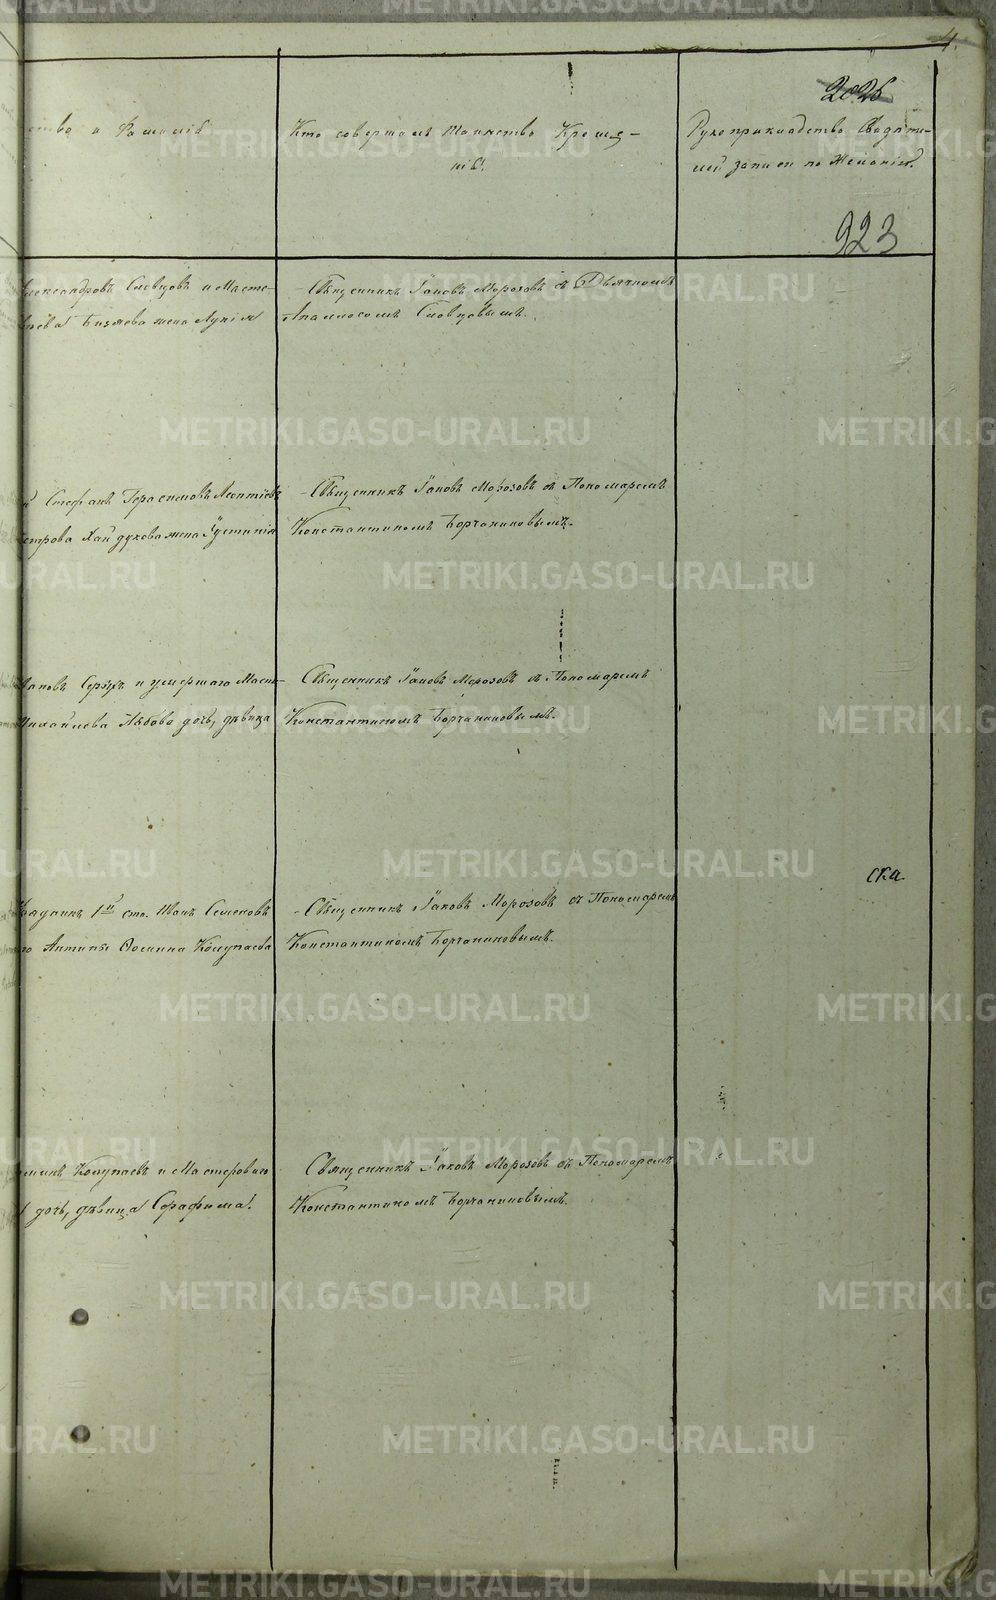 4.
2026
ство и Фамилія
Кто совершалъ таинство Креще-
нія.
Рукоприкладство Свидѣте-
лей записи по желанію.
923
Александровъ Словцовъ и Масте-
Бизяева жена Лукія
Священникъ Іаковъ Морозовъ съ Дьячкомъ
Аполлосомъ Словцовымъ.
Стефанъ Герасимовъ Леонтіевъ
Петрова Хайдукова жена Іустинія
Священникъ Іаковъ Морозовъ съ Пономаремъ
Константиномъ Борчаниновымъ.
Ивановъ и умершаго Масте-
Михайлева дочь, дѣвица
Священникъ Іаковъ Морозовъ съ Пономаремъ
Константиномъ Борчаниновымъ.
ска
Урядникъ 1й ста. Иванъ Семеновъ
Антипы Ѳомина Копупаева
Священникъ Іаковъ Морозовъ съ Пономаремъ
Константиномъ Борчаниновымъ.
и Мастероваго
дочь, дѣвица Серафима.
Священникъ Іаковъ Морозовъ съ Пономаремъ
Константиномъ Борчаниновымъ.
METRIKI.GASO-URAL.RU